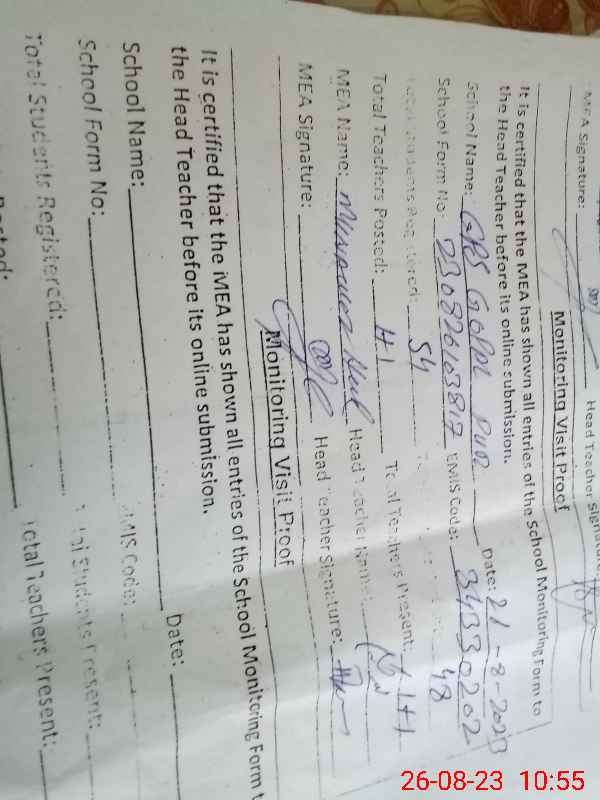 MEA Signature: Head Teacher Signature
Monitoring Visit Proof
It is certified that the MEA has shown all entries of the School Monitoring Form to
the Head Teacher before its online submission.
School Name: GPS Date: 21-8-2023
School Form No: 2308261038 EMIS Code: 34330202
Total Students Registered: 54 48
Total Teachers Posted: Total Teachers Present:
MEA Name: Head Teacher Name:
MEA Signature: Head Teacher Signature:
Monitoring Visit Proof
It is certified that the MEA has shown all entries of the School Monitoring Form t
the Head Teacher before its online submission.
School Name: Date:
School Form No: EMIS Code:
Total Students Registered: Total Students Present:
Posted: Total Teachers Present:
26-08-23 10:55